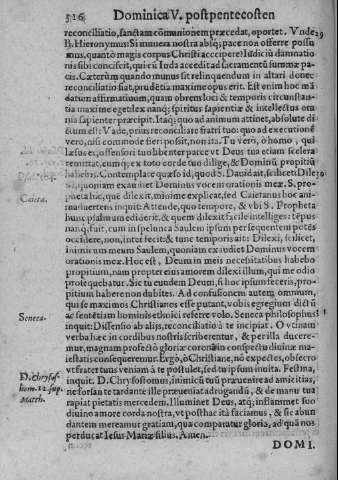 526 Dominica V. post pentecosten
reconciliatio, sanctam cõmunionem præcedat, oportet. Vnde
B. Hieronymus: Si munera nostra absq; pace non offerre possu
mus, quantò magis corpus Christi accipere? Iudicii damnatio
nis sibi conscisit, qui cũ Iuda accedit ad sacramentũ summæ pa
cis. Cæterùm quando munus sit relinquendum in altari donec
reconciliatio fiat, prudẽtia maxime opus erit. Est enim hoc mã
datum affirmatiuum, quam ob rem loci & temporis circunstan
tia maxime eget: lex nanq; spiritus sapientiæ & intellectus om
nia sapienter præcepit. Itaq; quo ad animum attinet, absolute di
ctum est: Vade, prius reconciliare fratri tuo: quo ad executionẽ
vero, nisi commode fieri possit, non ita. Tu verò, ò homo, qui
læsus es, offensori tuo libenter parce vt Deus tua etiam scelera
remittat, eumq; ex toto corde tuo dilige, & Dominũ propitiũ
habebis. Contemplare quæso id, quod S. Dauid ait, scilicet: Dile
xi, quoniam exaudiet Dominus vocem orationis meæ. S. pro
pheta hic, quē dilexit, minime explicat, sed Caietanus hoc ani
maduertens inquit: Attende, quo tempore, & vbi S. Propheta
hunc psalmum ediderit, & quem dilexit facile intelliges: tẽpus
nanq; fuit, cum in spelunca Saulem ipsum persequentem potẽs
occidere, non interfecit: & tunc temporis ait: Dilexi, scilicet,
inimicum meum Saulem, quoniam exaudiet Dominus vocem
orationis meæ. Hoc est, Deum in meis necessitatibus habebo
propitium, nam propter eius amorem dilexi illum, qui me odio
prosequebatur. Sic tu eundem Deum, si hoc ipsum feceris, pro-
pitium habere non dubites. Ad confusionem autem omnium,
qui se maximos Christianos esse putant, vobis egregium dictũ
ac sententiam hominis ethnici referre volo. Seneca philosophus
inquit: Dissensio ab alijs, reconciliatio à te incipiat. O vtinam
verba hæc in cordibus nostris scriberentur, & per illa ducere-
mur, magnam profectò gloriæ coronã in conspectu diuinæ ma
iestatis consequeremur. Ergò, ò Christiane, nõ expectes, obsecro
vt frater tuus veniam à te postulet, sed tu ipsum inuita. Festina,
inquit. D. Chrysostomus, inimicũ tuũ præuenire ad amicitiam,
ne forsan te tardante ille præueniat adrogandũ, & de manu tua
rapiat pietatis mercedem. Illuminet Deus, atq; inflammet suo
diuino amore corda nostra, vt posthac ita faciamus, & sic abun
dantem mereamur gratiam, qua comparatur gloria, ad quã nos
perducat Iesus Mariæ filius. Amen.
DOMI.
Caieta.
Seneca.
D. chrysost.
hom. 22. sup.
Matth.